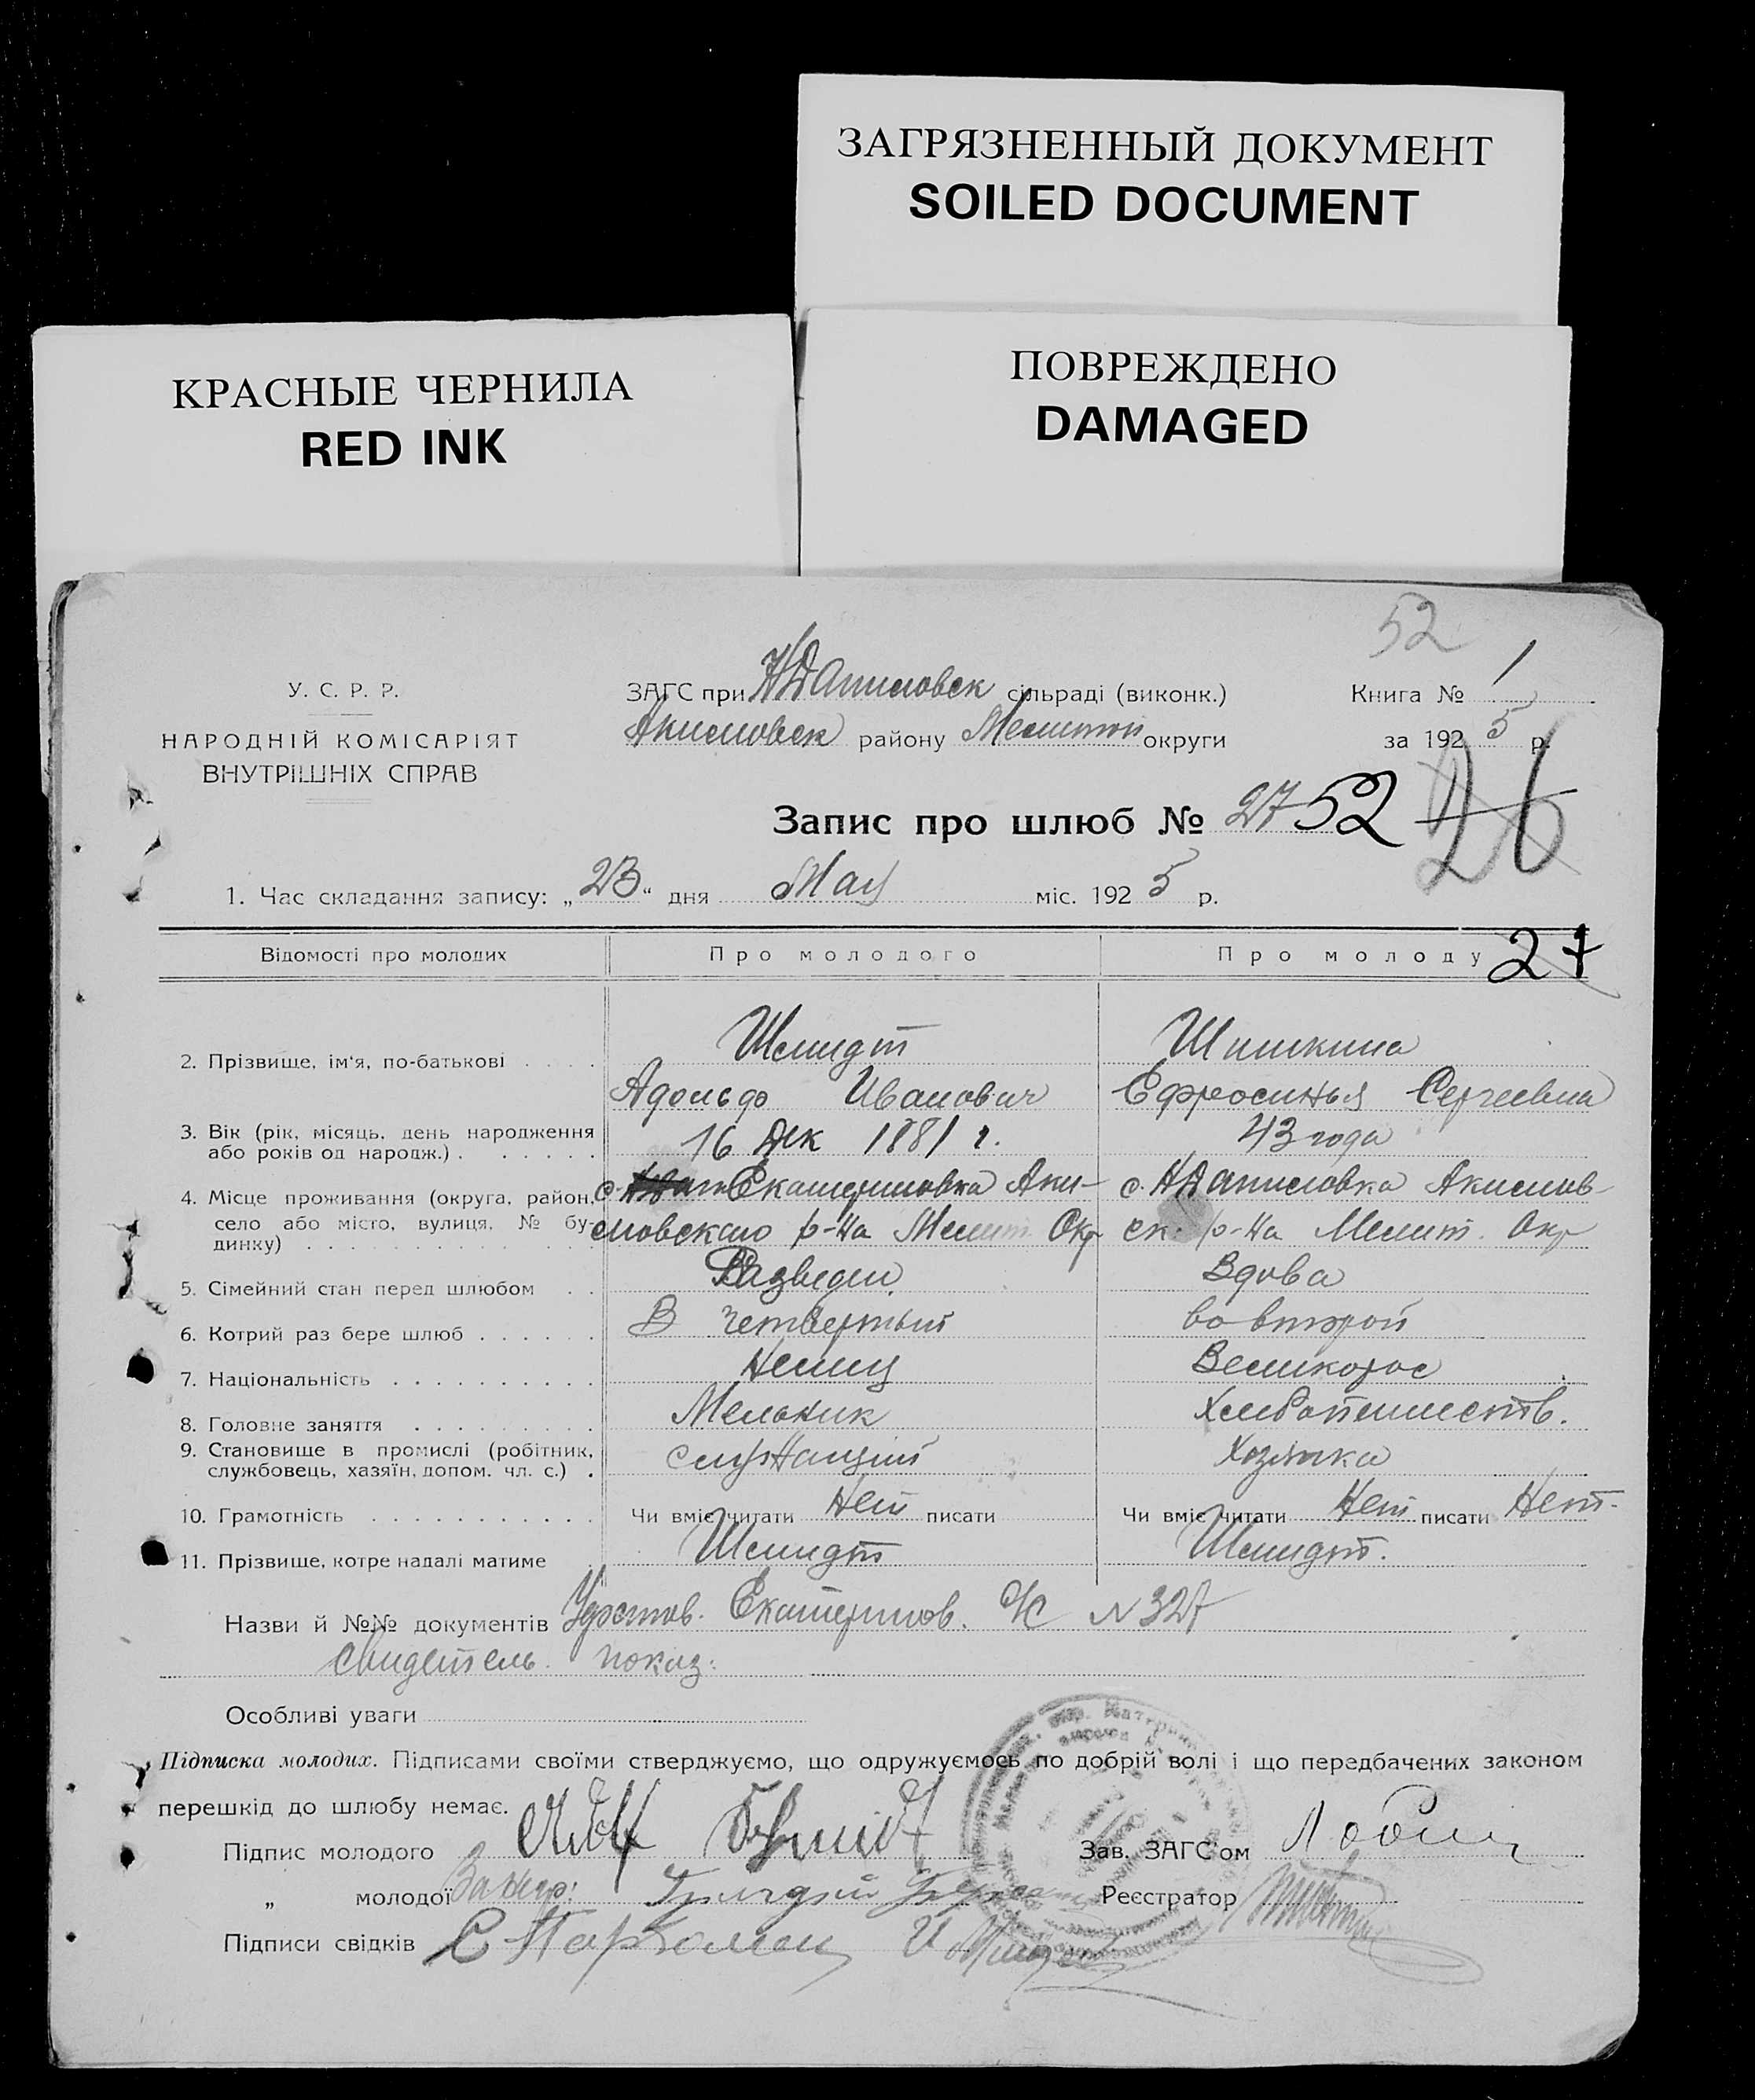 ЗАГРЯЗНЕННЫЙ ДОКУМЕНТ
SOILED DOCUMENT
КРАСНЫЕ ЧЕРНИЛА
RED INK
ПОВРЕЖДЕНО
DAMAGED
52
У. С. Р. Р.
НАРОДНІЙ КОМІСАРІЯТ
ВНУТРІШНІХ СПРАВ
ЗАГС при сільраді (виконк.)
Акимовск району Мелитоп округи
Книга № 1
за 1925 р.
Запис про шлюб № 27 52 26
1. Час складання запису: „23“ дня Мая міс. 1925 р.
27
Відомості про молодих Про молодого Про молоду
2. Прізвище, ім'я, по-батькові . . . . Шмидт Шишкина
Адольф Иванович Ефросинья Сергеевна
3. Вік (рік, місяць, день народження або років од народж.) . . . . . . 16 Дек 1881 г. 43 года
4. Місце проживання (округа, район, село або місто, вулиця, № будинку) . . . с. Екатериновка Акимовского р-на Мелит. Окр с. Акимовск. р-на Мелит. Окр
5. Сімейний стан перед шлюбом . . Разведен. Вдова
6. Котрий раз бере шлюб . . . . . . В четвертый во второй
7. Національність . . . . . . . . . . Немец Великорос
8. Головне заняття . . . . . . . . . Мельник Хлебопашеств.
9. Становище в промислі (робітник, службовець, хазяїн, допом. чл. с.) . Хозяйка
10. Грамотність . . . . . . . . . . . Чи вміє читати Нет писати Чи вміє читати Нет писати Нет.
11. Прізвище, котре надалі матиме Шмидт Шмидт.
Назви й №№ документів Удостов. Екатеринов. С/С N 327
свидетель. показ.
Особливі уваги
Підписка молодих. Підписами своїми стверджуємо, що одружуємось по добрій волі і що передбачених законом
перешкід до шлюбу немає.
Підпис молодого Adolf Schmidt Зав. ЗАГС'ом
„ молодої За негр. Реєстратор
Підписи свідків С Пархоменко